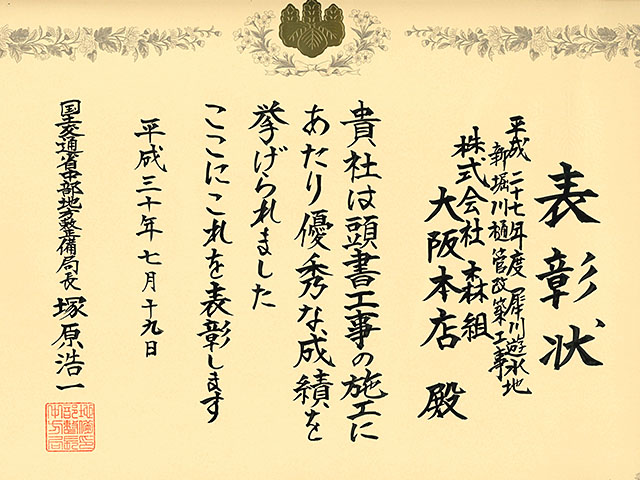 表彰状
平成二十七年度犀川遊水地
新堀川樋管改築工事
株式会社森組
大阪本店殿
貴社は頭書工事の施工に
あたり優秀な成績を
挙げられました
ここにこれを表彰します
平成三十年七月十九日
国土交通省中部地方整備局長 塚原浩一